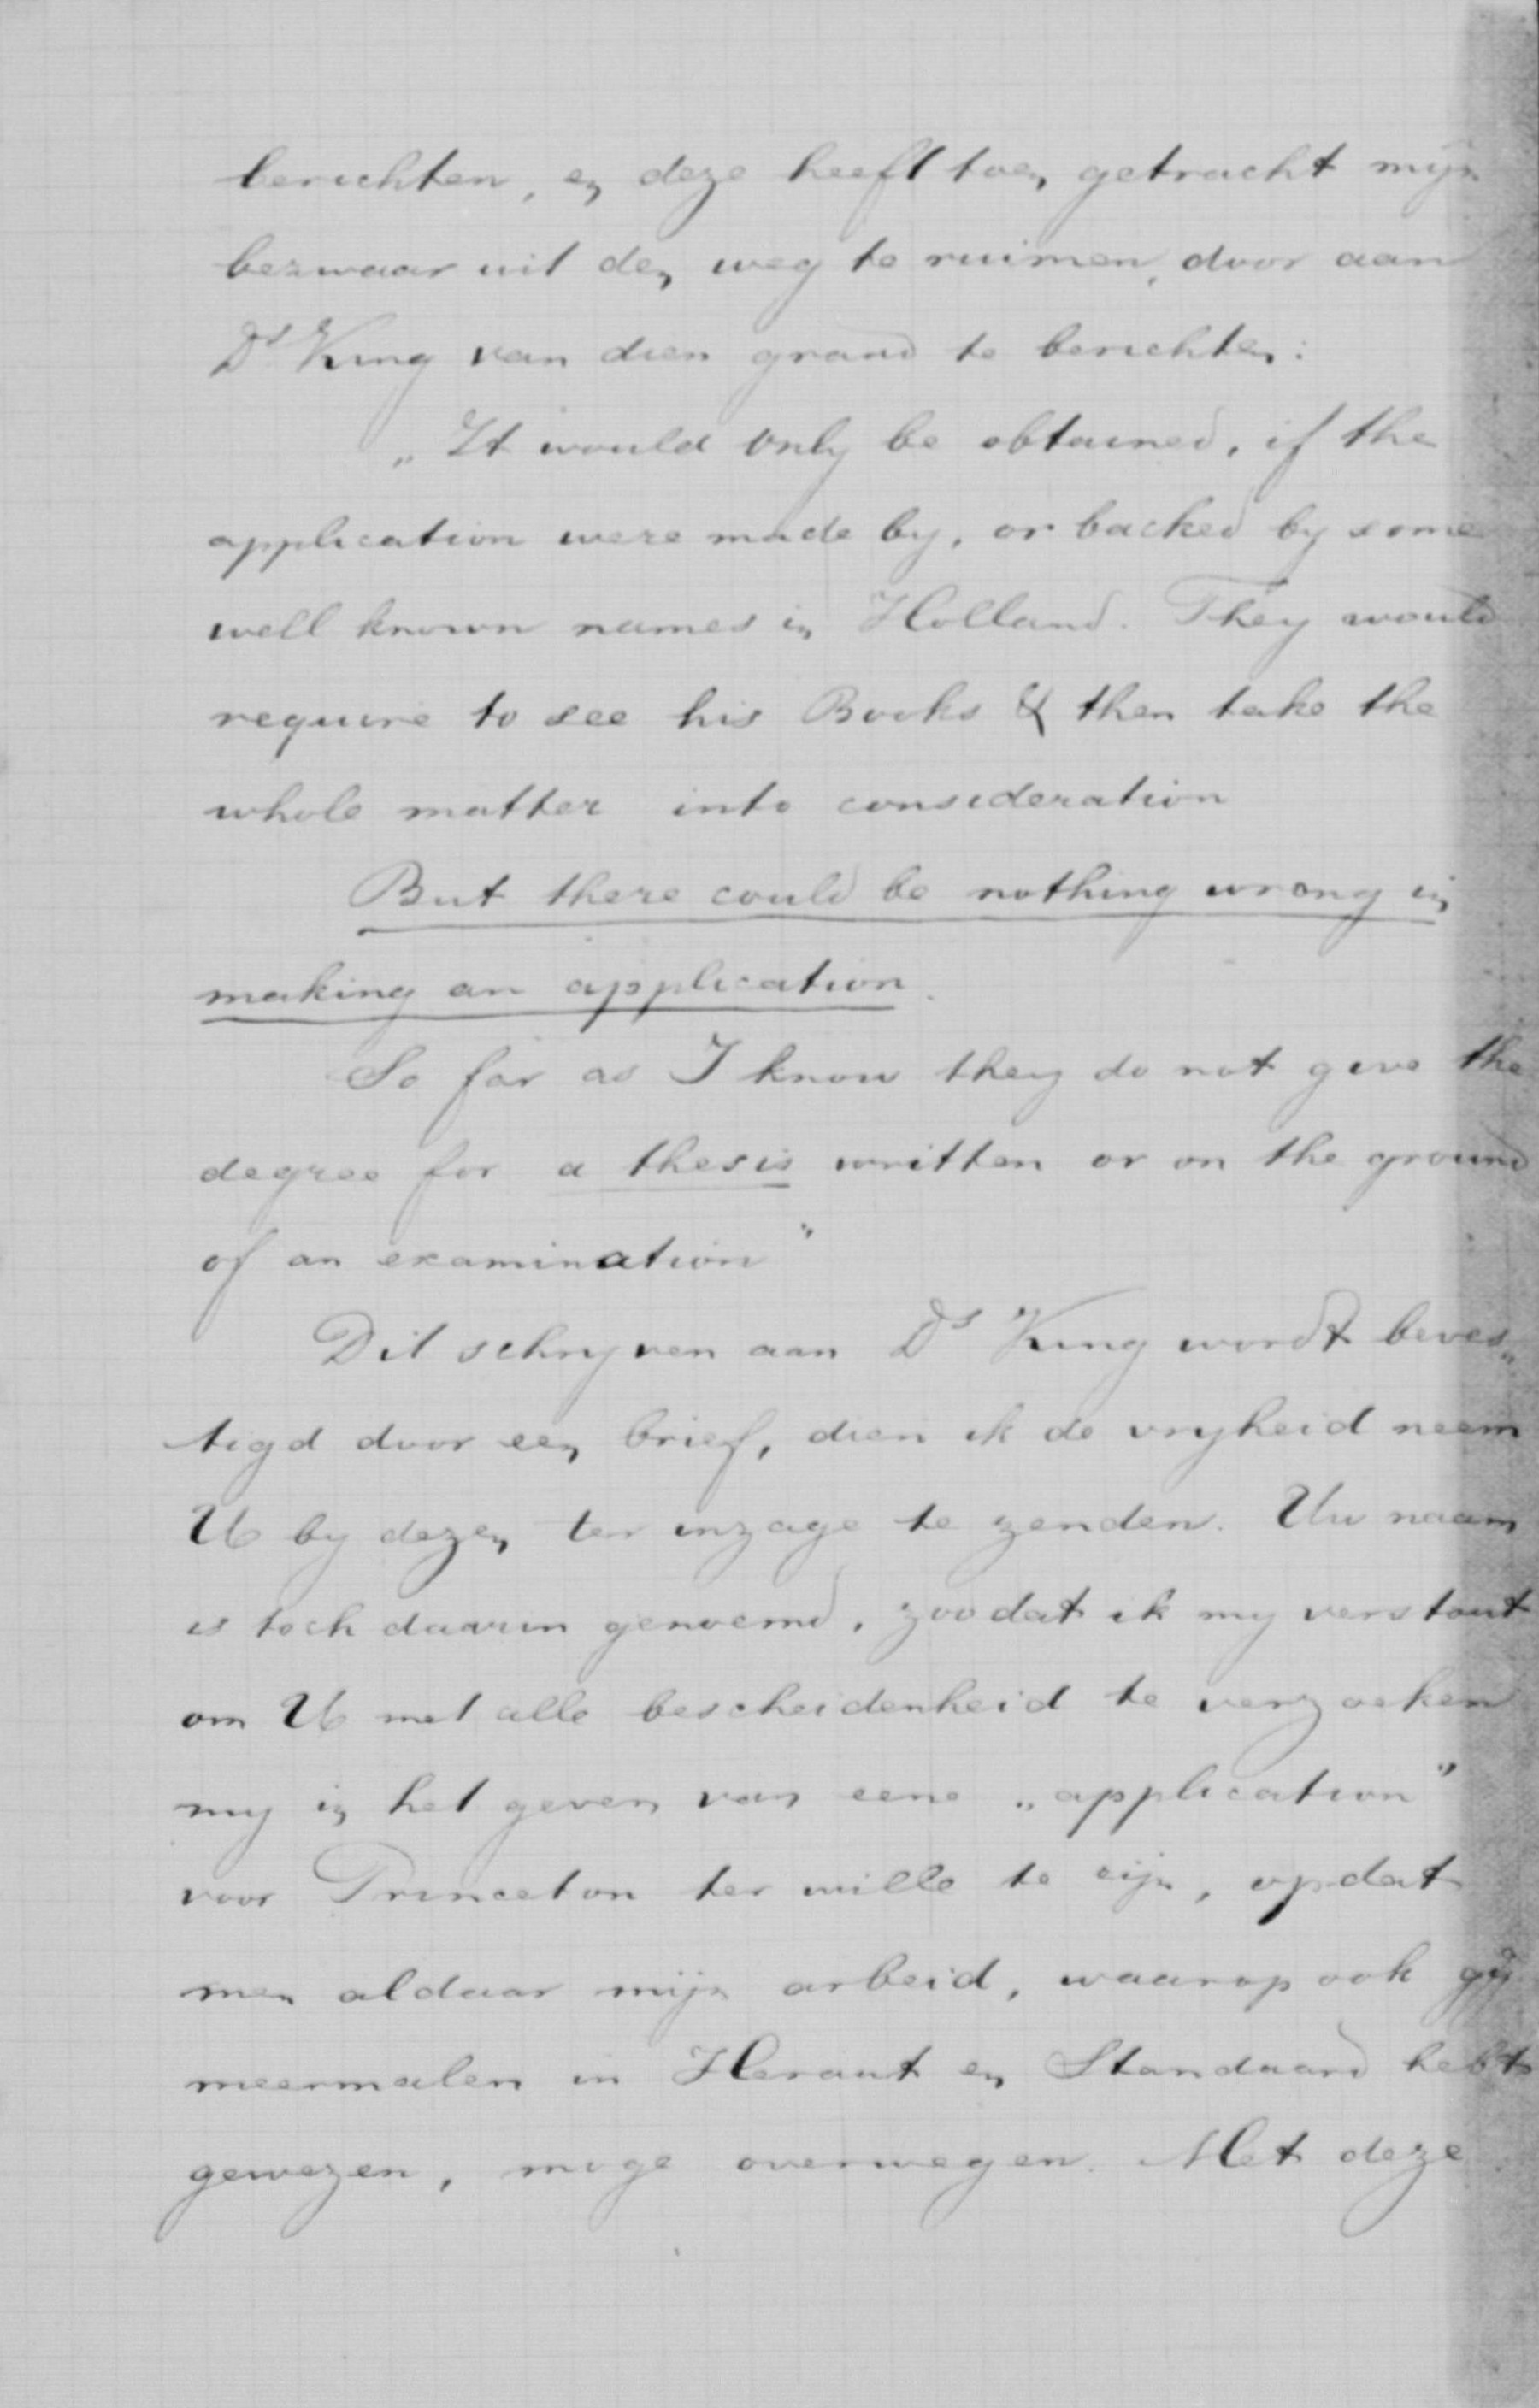 berichten, en deze heeft toen getracht mijn
bezwaar uit den weg te ruimen, door aan
Ds King van dien grand te berichten:
„It would only be obtained, if the
application were made by, or backed by some
well known names in Holland. They would
require to see his Books & then take the
whole matter into consideration
But there could be nothing wrong in
making an application.
So far as I know they do not give the
degree for a thesis written or on the ground
of an examination"
Dit schrijven aan Ds King wordt beves„
tigd door een brief, dien ik de vryheid neem
U by dezen ter inzage te zenden. Uw naam
is toch daarin genoemd, zoodat ik my verstout
om U met alle bescheidenheid te verzoeken
my in het geven van eene „application"
voor Princeton ter wille te zijn, opdat
men aldaar mijn arbeid, waarop ook gij
meermalen in Heraut en Standaard hebt
gewezen, moge overwegen. Met deze